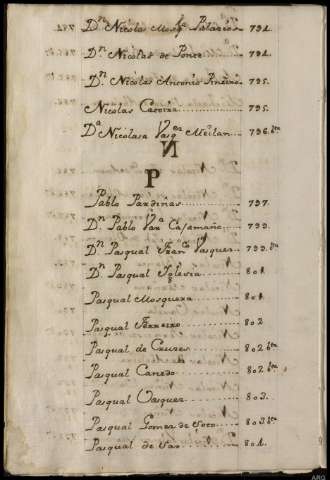 Dn. Nicolas Mosqa. Palacios 791.
Dn. Nicolas de Ponce 794.
Dn. Nicolas Antonio 795.
Nicolas 795.
Da. Nicolasa Vasqez. Meilan 796.bta
N
P
Pablo Pardinas 797.
Dn. Pablo Caamaña 799.
Dn. Pasqual Franco. Vasquez 799.bta
Dn. Pasqual Yglesia 801.
Pasqual Mosquera 801.
Pasqual Ferreiro 802
Pasqual de Cruzes 802.bta
Pasqual Canedo 802.bta
Pasqual Vasquez 803.
Pasqual Gomez de Soto 803.bta
Pasqual de Sas 804.